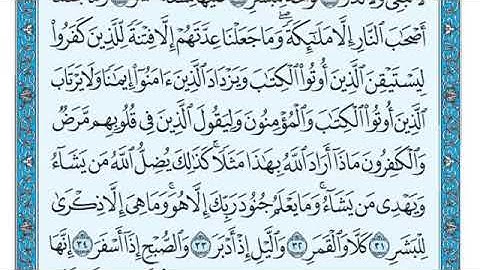 أَصْحَٰبَ ٱلنَّارِ إِلَّا مَلَٰٓئِكَةً ۙ وَمَا جَعَلْنَا عِدَّتَهُمْ إِلَّا فِتْنَةً لِّلَّذِينَ كَفَرُوا۟
لِيَسْتَيْقِنَ ٱلَّذِينَ أُوتُوا۟ ٱلْكِتَٰبَ وَيَزْدَادَ ٱلَّذِينَ ءَامَنُوٓا۟ إِيمَٰنًا ۙ وَلَا يَرْتَابَ
ٱلَّذِينَ أُوتُوا۟ ٱلْكِتَٰبَ وَٱلْمُؤْمِنُونَ ۙ وَلِيَقُولَ ٱلَّذِينَ فِى قُلُوبِهِم مَّرَضٌ
وَٱلْكَٰفِرُونَ مَاذَآ أَرَادَ ٱللَّهُ بِهَٰذَا مَثَلًا ۚ كَذَٰلِكَ يُضِلُّ ٱللَّهُ مَن يَشَآءُ
وَيَهْدِى مَن يَشَآءُ ۚ وَمَا يَعْلَمُ جُنُودَ رَبِّكَ إِلَّا هُوَ ۚ وَمَا هِىَ إِلَّا ذِكْرَىٰ
لِلْبَشَرِ ٣١ كَلَّا وَٱلْقَمَرِ ٣٢ وَٱلَّيْلِ إِذْ أَدْبَرَ ٣٣ وَٱلصُّبْحِ إِذَآ أَسْفَرَ ٣٤ إِنَّهَا